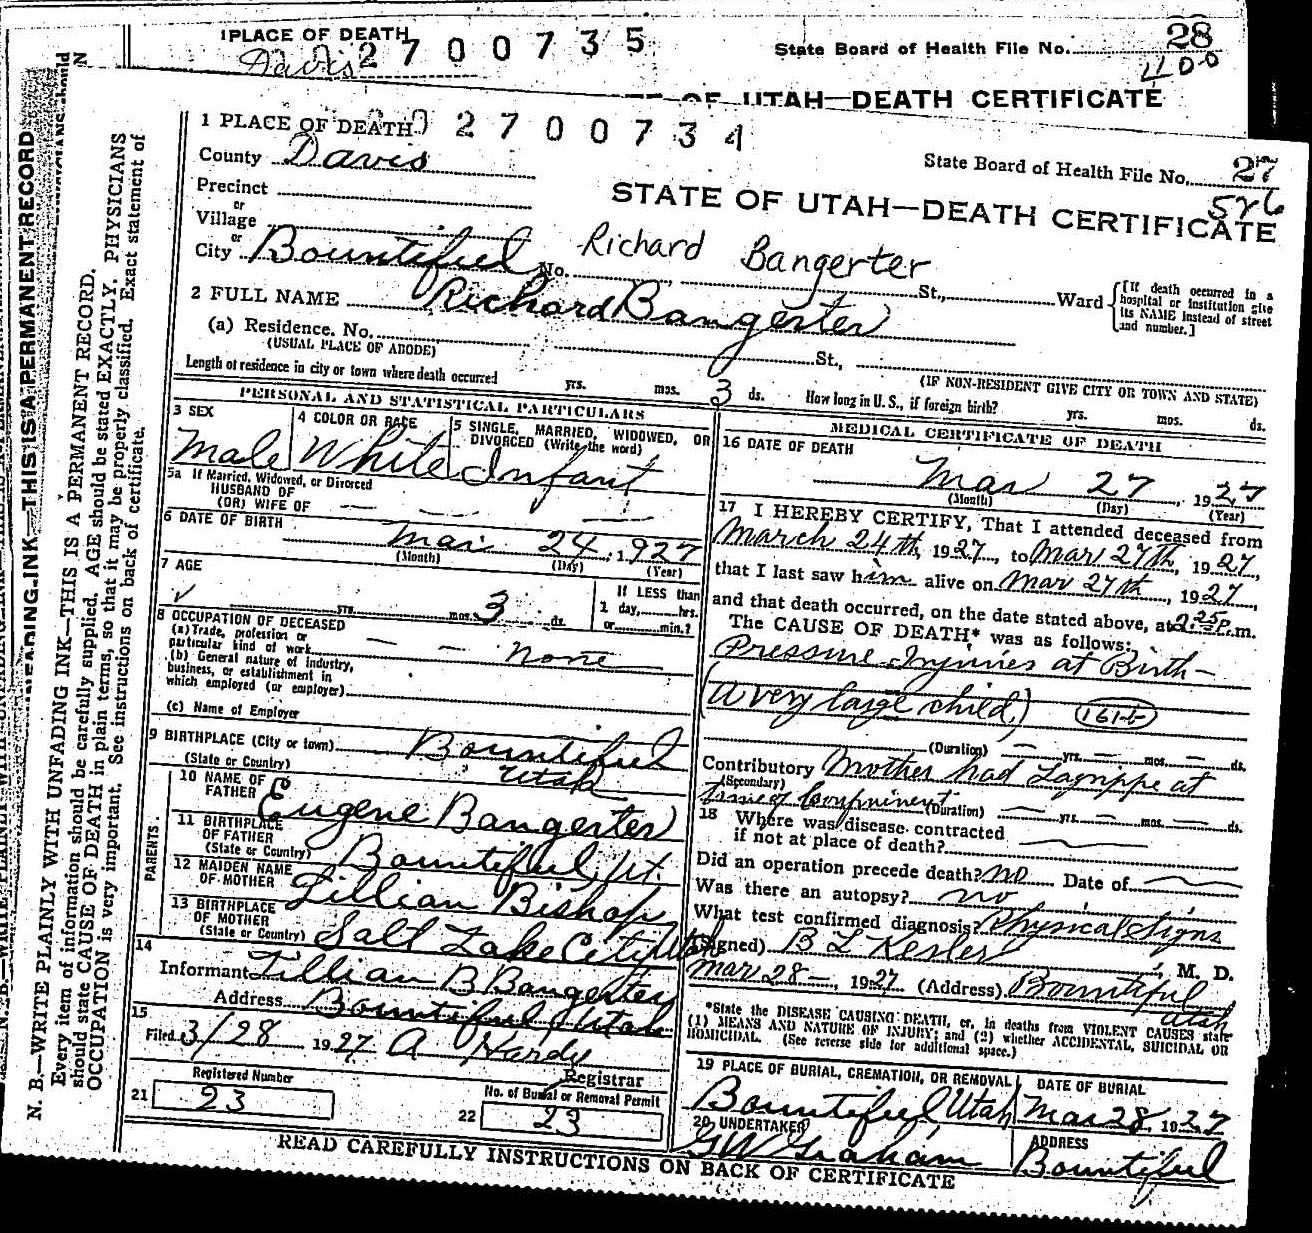 1 PLACE OF DEATH 2 7 0 0 7 3 5
State Board of Health File No. 28
Davis
OF UTAH—DEATH CERTIFICATE
1 PLACE OF DEATH 2 7 0 0 7 3 4
County Davis
State Board of Health File No. 27
526
Precinct
STATE OF UTAH—DEATH CERTIFICATE
or
Village
or
City Bountiful No. St., Ward
Richard Bangerter
[If death occurred in a hospital or institution give its NAME instead of street and number.]
2 FULL NAME Richard Bangerter
(a) Residence. No. St.,
(USUAL PLACE OF ABODE)
(IF NON-RESIDENT GIVE CITY OR TOWN AND STATE)
Length of residence in city or town where death occurred yrs. mos. 3 ds. How long in U. S., if foreign birth? yrs. mos. ds.
PERSONAL AND STATISTICAL PARTICULARS
3 SEX
Male
4 COLOR OR RACE
White
5 SINGLE, MARRIED, WIDOWED, OR
DIVORCED (Write the word)
Infant
5a If Married, Widowed, or Divorced
HUSBAND OF
(OR) WIFE OF
6 DATE OF BIRTH
Mar 24, 1927
(Month) (Day) (Year)
7 AGE
yrs. mos. 3 ds.
If LESS than
1 day, hrs.
or min.?
8 OCCUPATION OF DECEASED
(a) Trade, profession or
particular kind of work
(b) General nature of industry,
business, or establishment in
which employed (or employer)
none
(c) Name of Employer
9 BIRTHPLACE (City or town) Bountiful
(State or Country) Utah
PARENTS
10 NAME OF
FATHER Eugene Bangerter
11 BIRTHPLACE
OF FATHER
(State or Country) Bountiful, Ut.
12 MAIDEN NAME
OF MOTHER Lillian Bishop
13 BIRTHPLACE
OF MOTHER
(State or Country) Salt Lake City Utah
14
Informant Lillian B Bangerter
Address Bountiful Utah
15
Filed 3/28 1927 A Hardy
Registrar
Registered Number
21 23
No. of Burial or Removal Permit
22 23
MEDICAL CERTIFICATE OF DEATH
16 DATE OF DEATH
Mar 27, 1927
(Month) (Day) (Year)
17 I HEREBY CERTIFY, That I attended deceased from
March 24th, 1927, to Mar 27th, 1927,
that I last saw him alive on Mar 27th, 1927,
and that death occurred, on the date stated above, at 2:25 P.m.
The CAUSE OF DEATH* was as follows:
Pressure Injuries at Birth—
(a very large child)
(Duration) yrs. mos. ds.
Contributory Mother had Lagrippe at
(Secondary)
time of Confinement (Duration) yrs. mos. ds.
18 Where was disease contracted
if not at place of death?
Did an operation precede death? no Date of
Was there an autopsy? no
What test confirmed diagnosis? Physical Signs
(Signed) B L Kesler, M. D.
Mar 28, 1927 (Address) Bountiful
Utah
*State the DISEASE CAUSING DEATH, or, in deaths from VIOLENT CAUSES state
(1) MEANS AND NATURE OF INJURY; and (2) whether ACCIDENTAL, SUICIDAL OR
HOMICIDAL. (See reverse side for additional space.)
19 PLACE OF BURIAL, CREMATION, OR REMOVAL
Bountiful, Utah
DATE OF BURIAL
Mar 28, 1927
20 UNDERTAKER
GW Graham
ADDRESS
Bountiful
READ CAREFULLY INSTRUCTIONS ON BACK OF CERTIFICATE
N. B.—WRITE PLAINLY WITH UNFADING INK—THIS IS A PERMANENT RECORD.
Every item of information should be carefully supplied. AGE should be stated EXACTLY. PHYSICIANS
should state CAUSE OF DEATH in plain terms, so that it may be properly classified. Exact statement of
OCCUPATION is very important. See instructions on back of certificate.
INK—THIS IS A PERMANENT RECORD